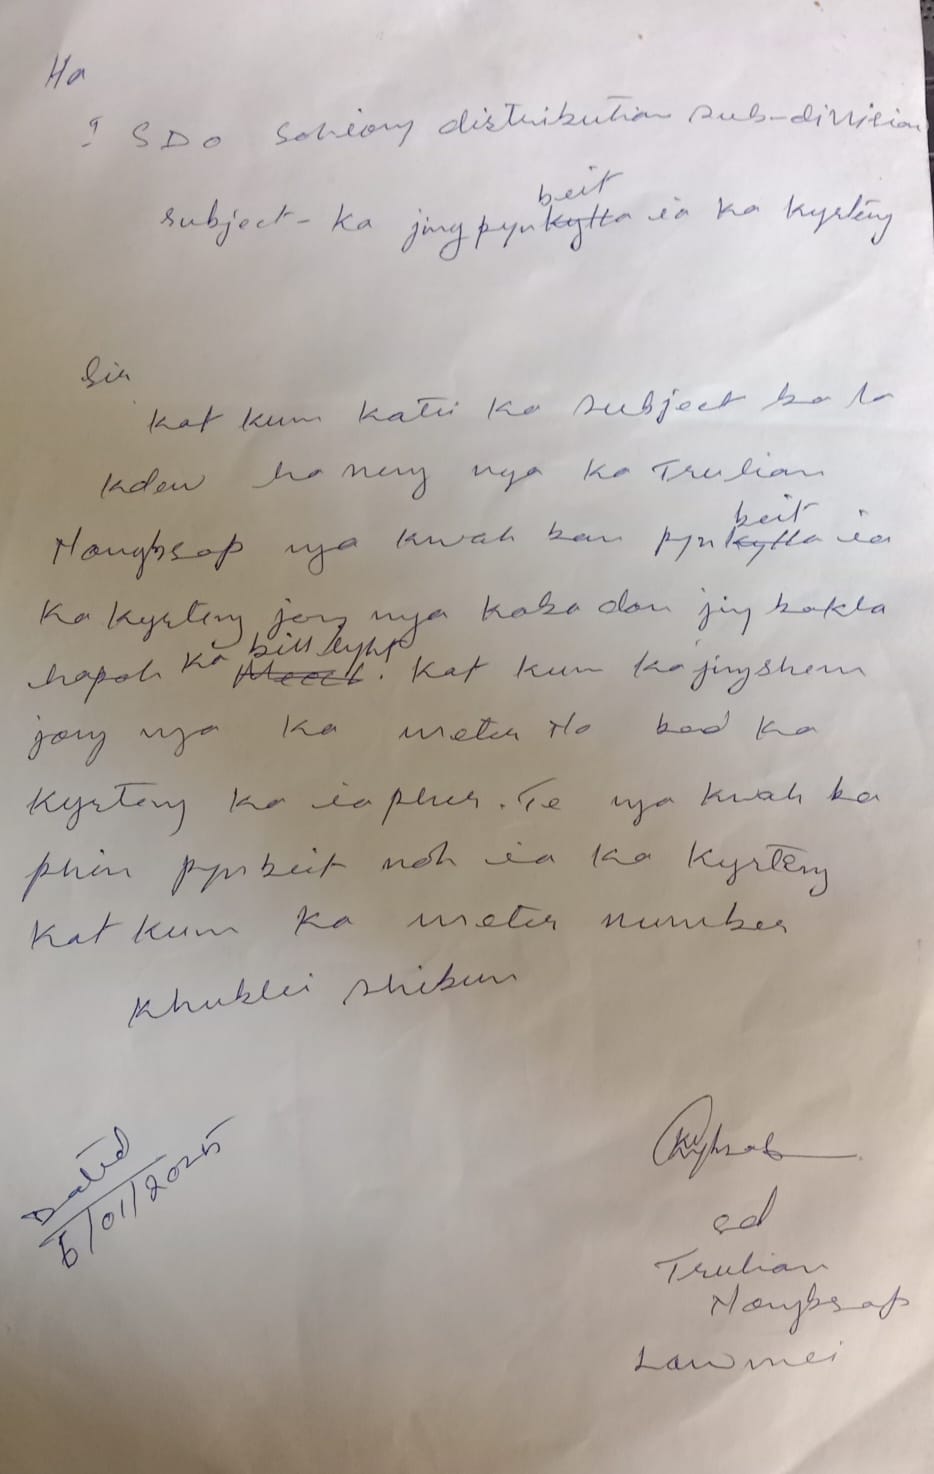 Ha
I SDO Sohiong distribution sub-division
subject - Ka jingpynbeit ia ka kyrteng
Sir
Kat kum katei ka subject ba la
kdew haneng nga ka Trulian
Nongbsap nga kwah ban pynbeit ia
ka kyrteng jong nga kaba don jing bakla
hapoh ka bill light. Kat kum ka jingshem
jong nga ka meter No bad ka
kyrteng ka iapher. Te nga kwah ba
phin pynbeit noh ia ka kyrteng
Kat kum ka meter number
Khublei shibun
Dated
6/01/2025
sd
Trulian
Nongbsap
Lawmei